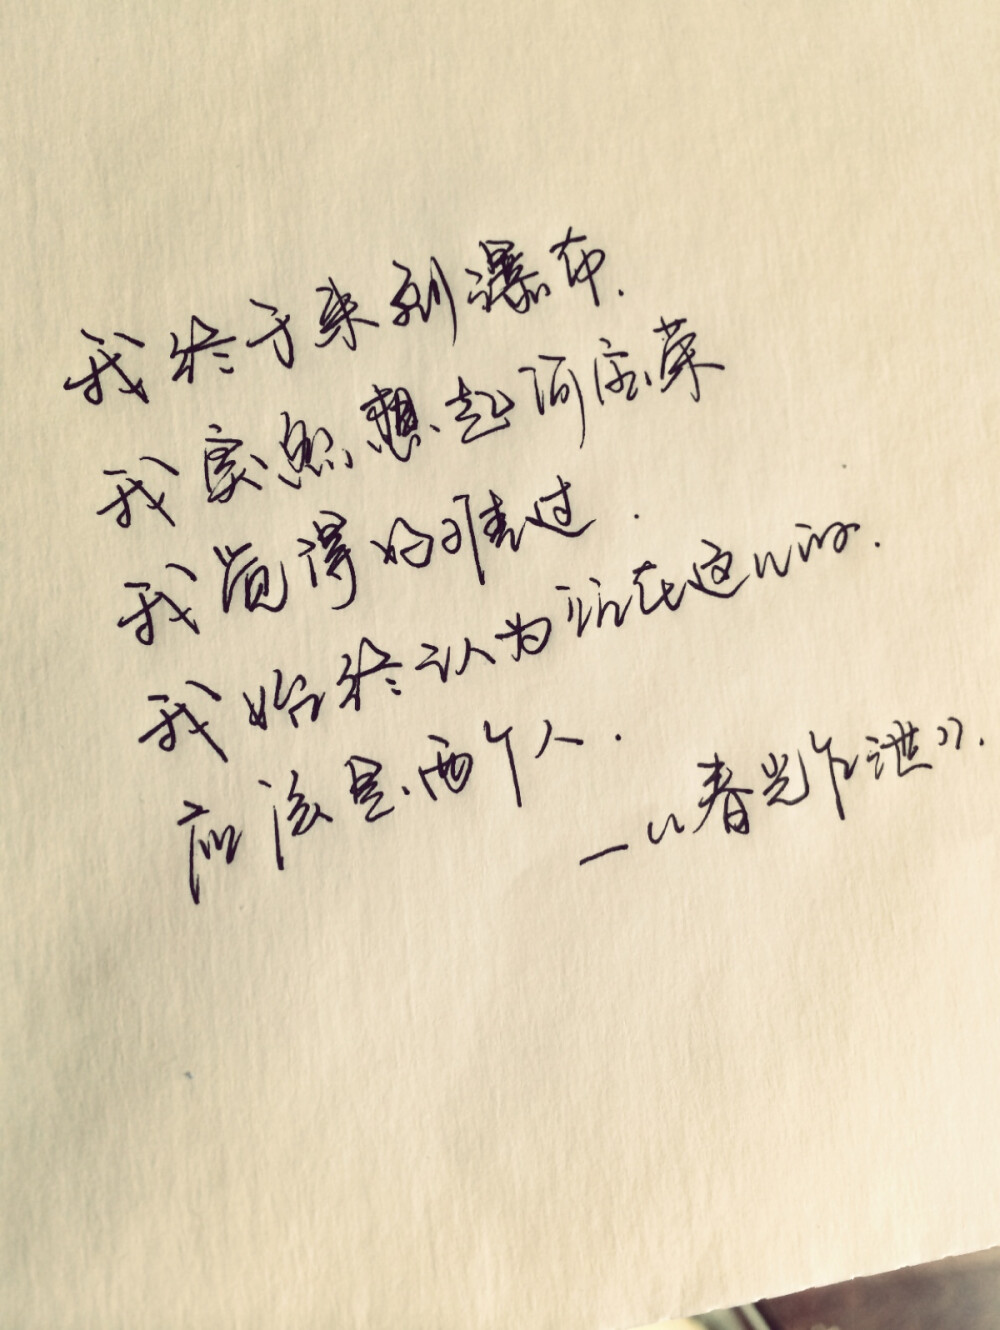 我终于来到瀑布.
我突然想起何宝荣
我觉得好难过.
我始终认为站在这儿的.
应该是两个人.
——《春光乍泄》.